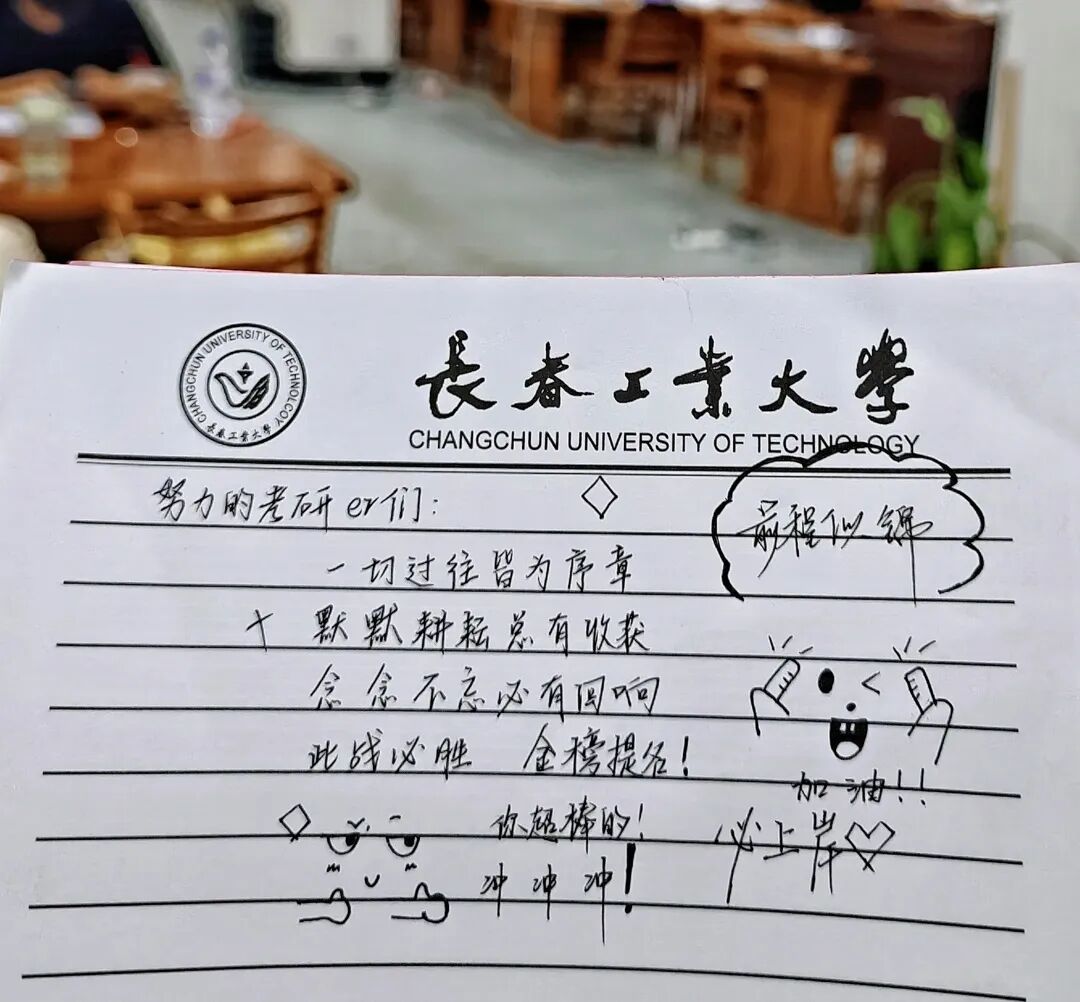 CHANGCHUN UNIVERSITY OF TECHNOLOGY
長春工業大學
長春工業大學
CHANGCHUN UNIVERSITY OF TECHNOLOGY
努力的考研er们:
前程似锦
一切过往皆为序章
默默耕耘总有收获
念念不忘必有回响
此战必胜 金榜提名!
加油!!
你超棒的!
必上岸
冲冲冲!